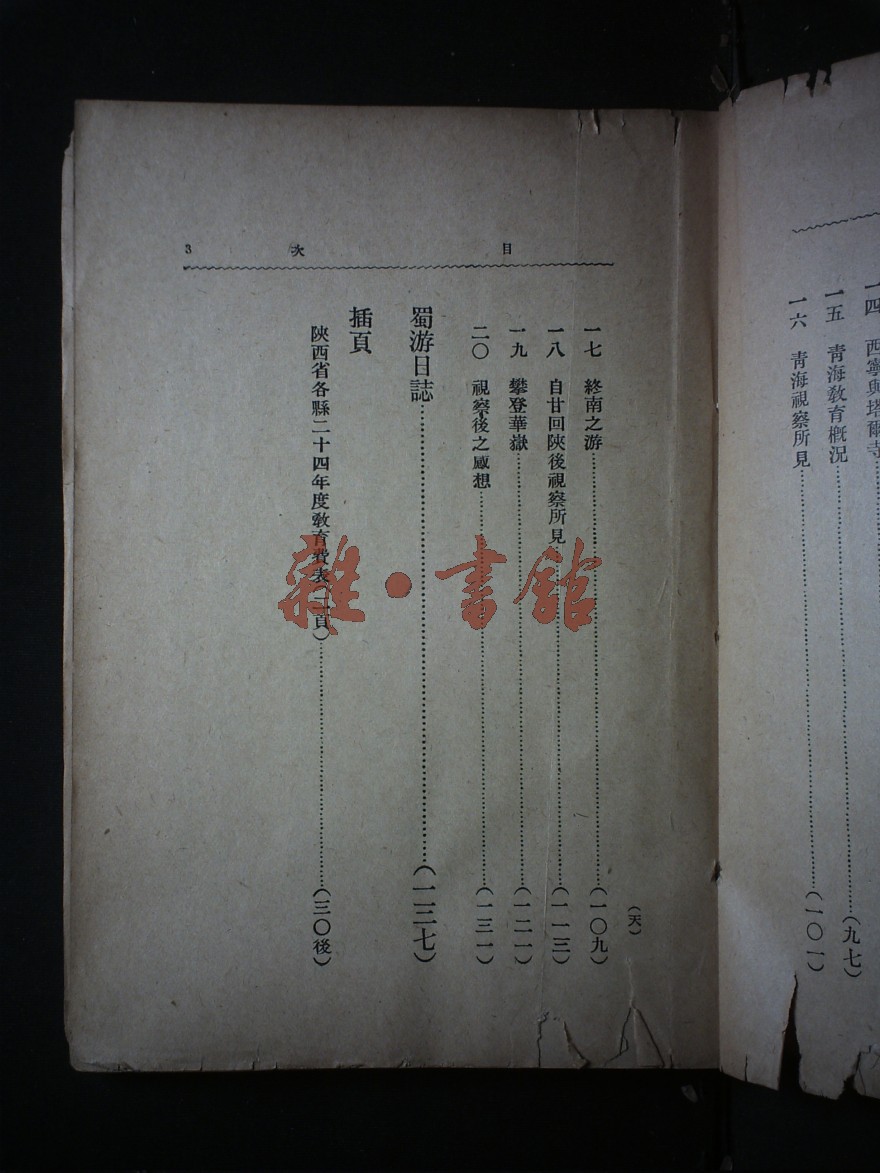 一四　西寧與塔爾寺
一五　靑海敎育槪況……(九七)
一六　靑海視察所見……(一〇一)
目次　3
(天)
一七　終南之游……(一〇九)
一八　自甘回陝後視察所見……(一一三)
一九　攀登華嶽……(一二一)
二〇　視察後之感想……(一三一)
蜀游日誌……(一三七)
插頁
陝西省各縣二十四年度敎育費表(二頁)……(三〇後)
雜·書館